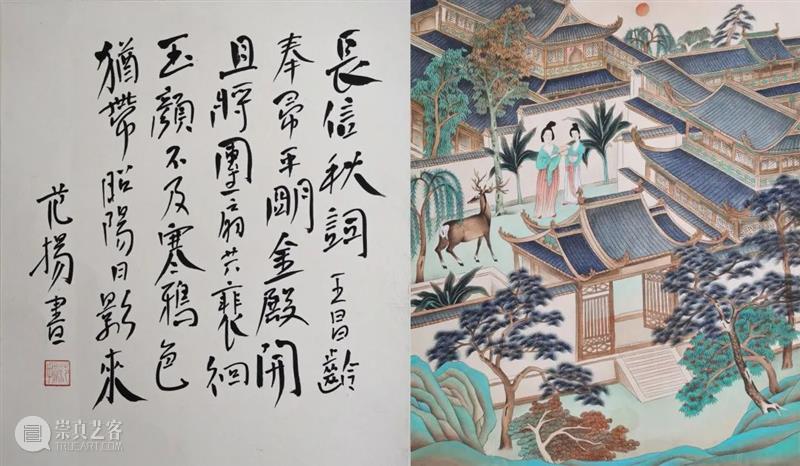 長信秋詞 王昌齡
奉帚平明金殿開
且將團扇共裵徊
玉顏不及寒鴉色
猶帶昭陽日影來
范揚書
崇真艺客
TRUEART.COM